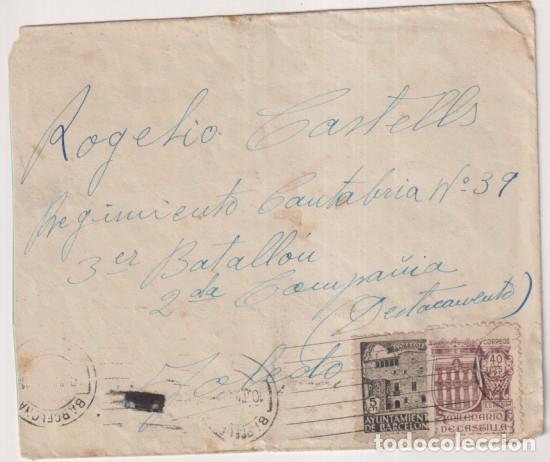 Rogelio Castells
Regimiento Cantabria Nº 39
3er Batallón
2da Compañia
(Destacamento)
Toledo
BARCELONA
BARCEL
CORREOS
5
AYUNTAMIENTO
DE BARCELON
CORREOS
40
MILENARIO
DE CASTILLA
todocoleccion